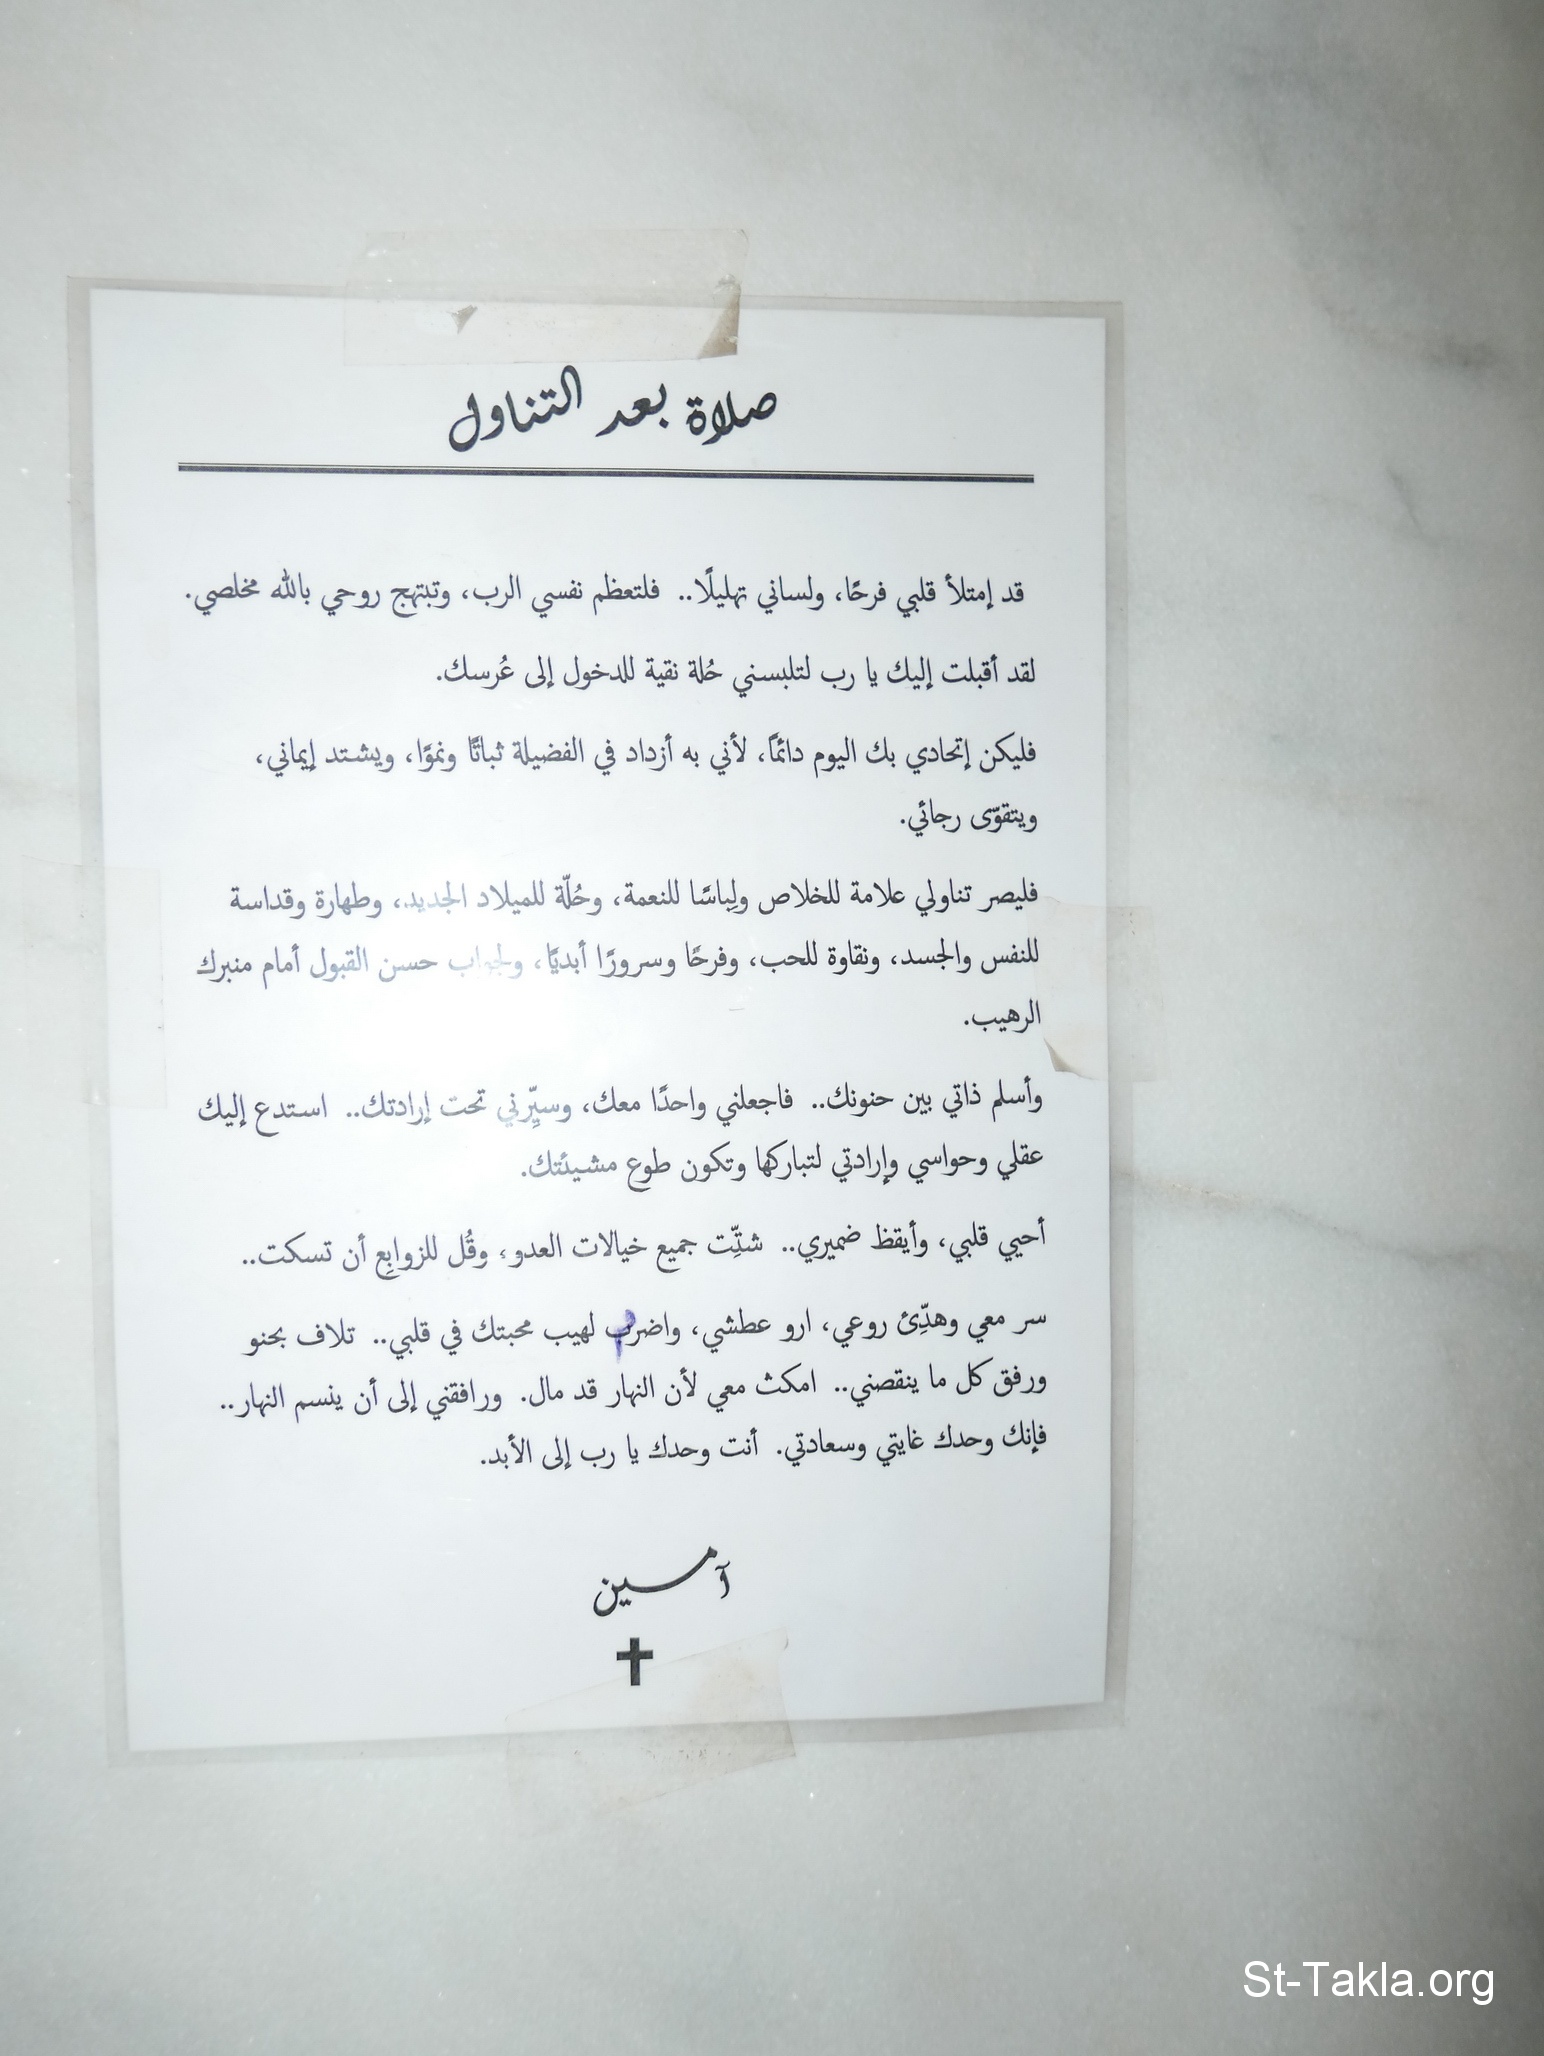 صلاة بعد التناول
قد إمتلأ قلبي فرحًا، ولساني تهليلًا.. فلتعظم نفسي الرب، وتبتهج روحي بالله مخلصي.
لقد أقبلت إليك يا رب لتلبسني حُلة نقية للدخول إلى عُرسك.
فليكن إتحادي بك اليوم دائمًا، لأني به أزداد في الفضيلة ثباتًا ونموًا، ويشتد إيماني،
ويتقوّى رجائي.
فليصر تناولي علامة للخلاص ولِباسًا للنعمة، وحُلّة للميلاد الجديد، وطهارة وقداسة
للنفس والجسد، ونقاوة للحب، وفرحًا وسرورًا أبديًا، ولجواب حسن القبول أمام منبرك
الرهيب.
وأسلم ذاتي بين حنونك.. فاجعلني واحدًا معك، وسيِّرني تحت إرادتك.. استدع إليك
عقلي وحواسي وإرادتي لتباركها وتكون طوع مشيئتك.
أحيي قلبي، وأيقظ ضميري.. شتِّت جميع خيالات العدو، وقُل للزوابِع أن تسكت..
سر معي وهدِّئ روعي، ارو عطشي، واضرم لهيب محبتك في قلبي.. تلاف بحنو
ورفق كل ما ينقصني.. امكث معي لأن النهار قد مال. ورافقني إلى أن ينسم النهار..
فإنك وحدك غايتي وسعادتي. أنت وحدك يا رب إلى الأبد.
آمسين
St-Takla.org